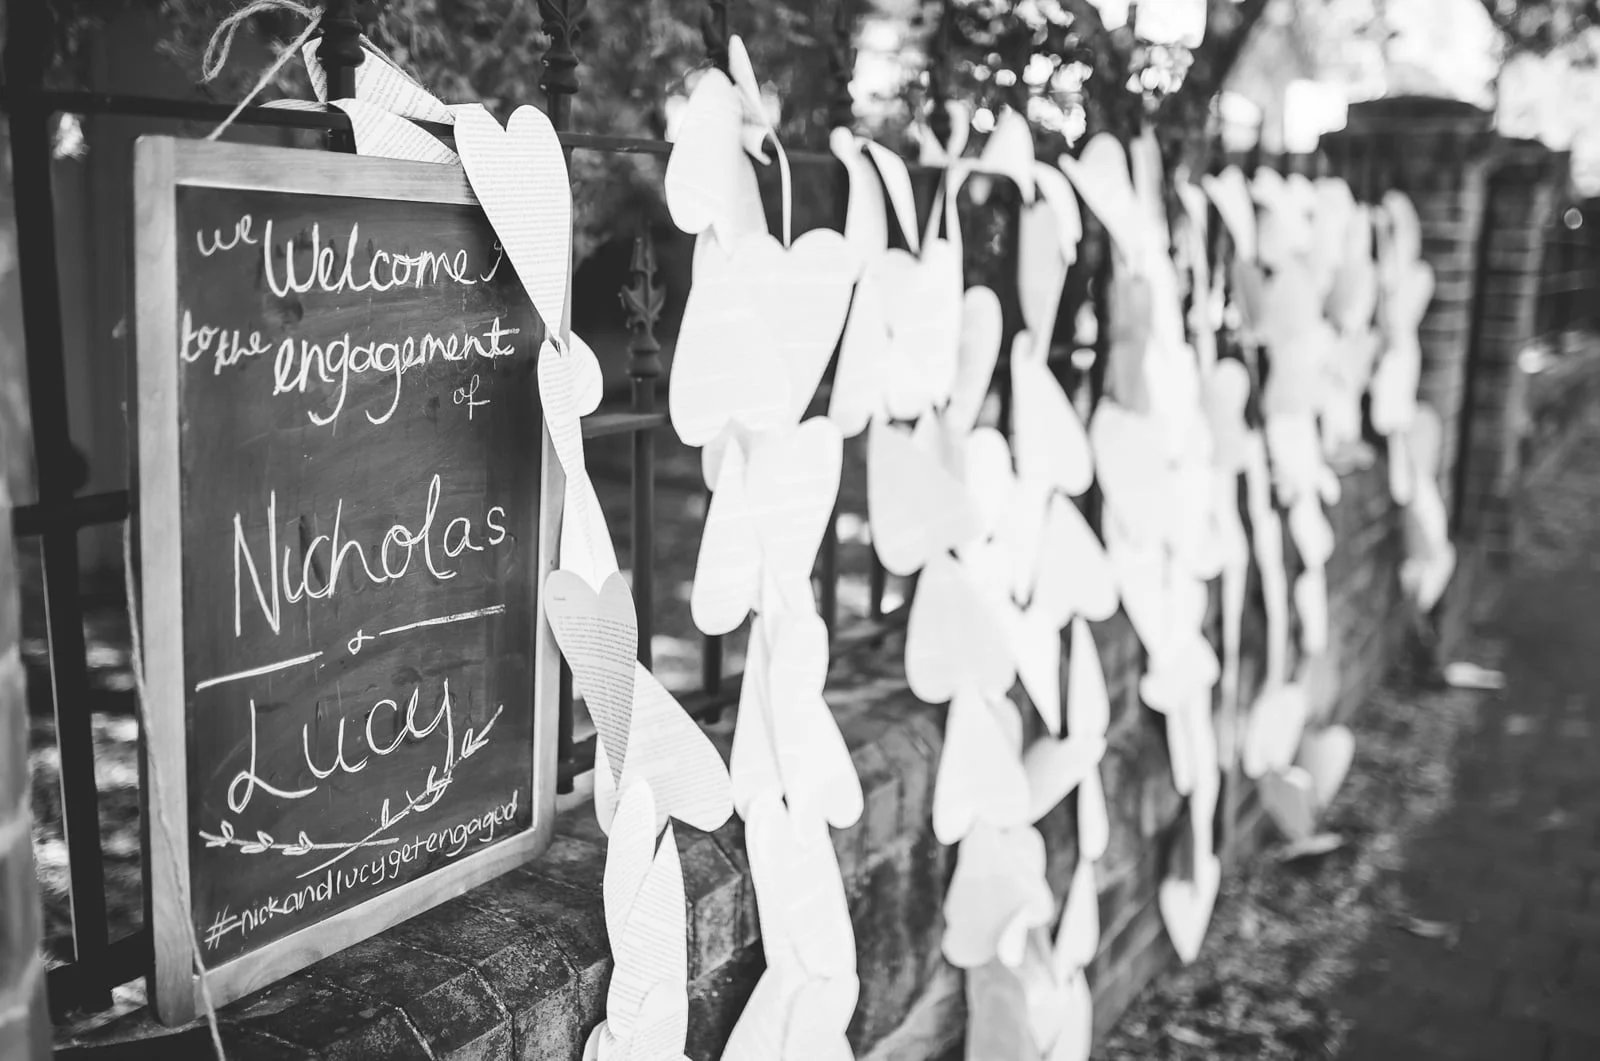 we Welcome
to the engagement
of
Nicholas
&
Lucy
#nickandlucygetengaged